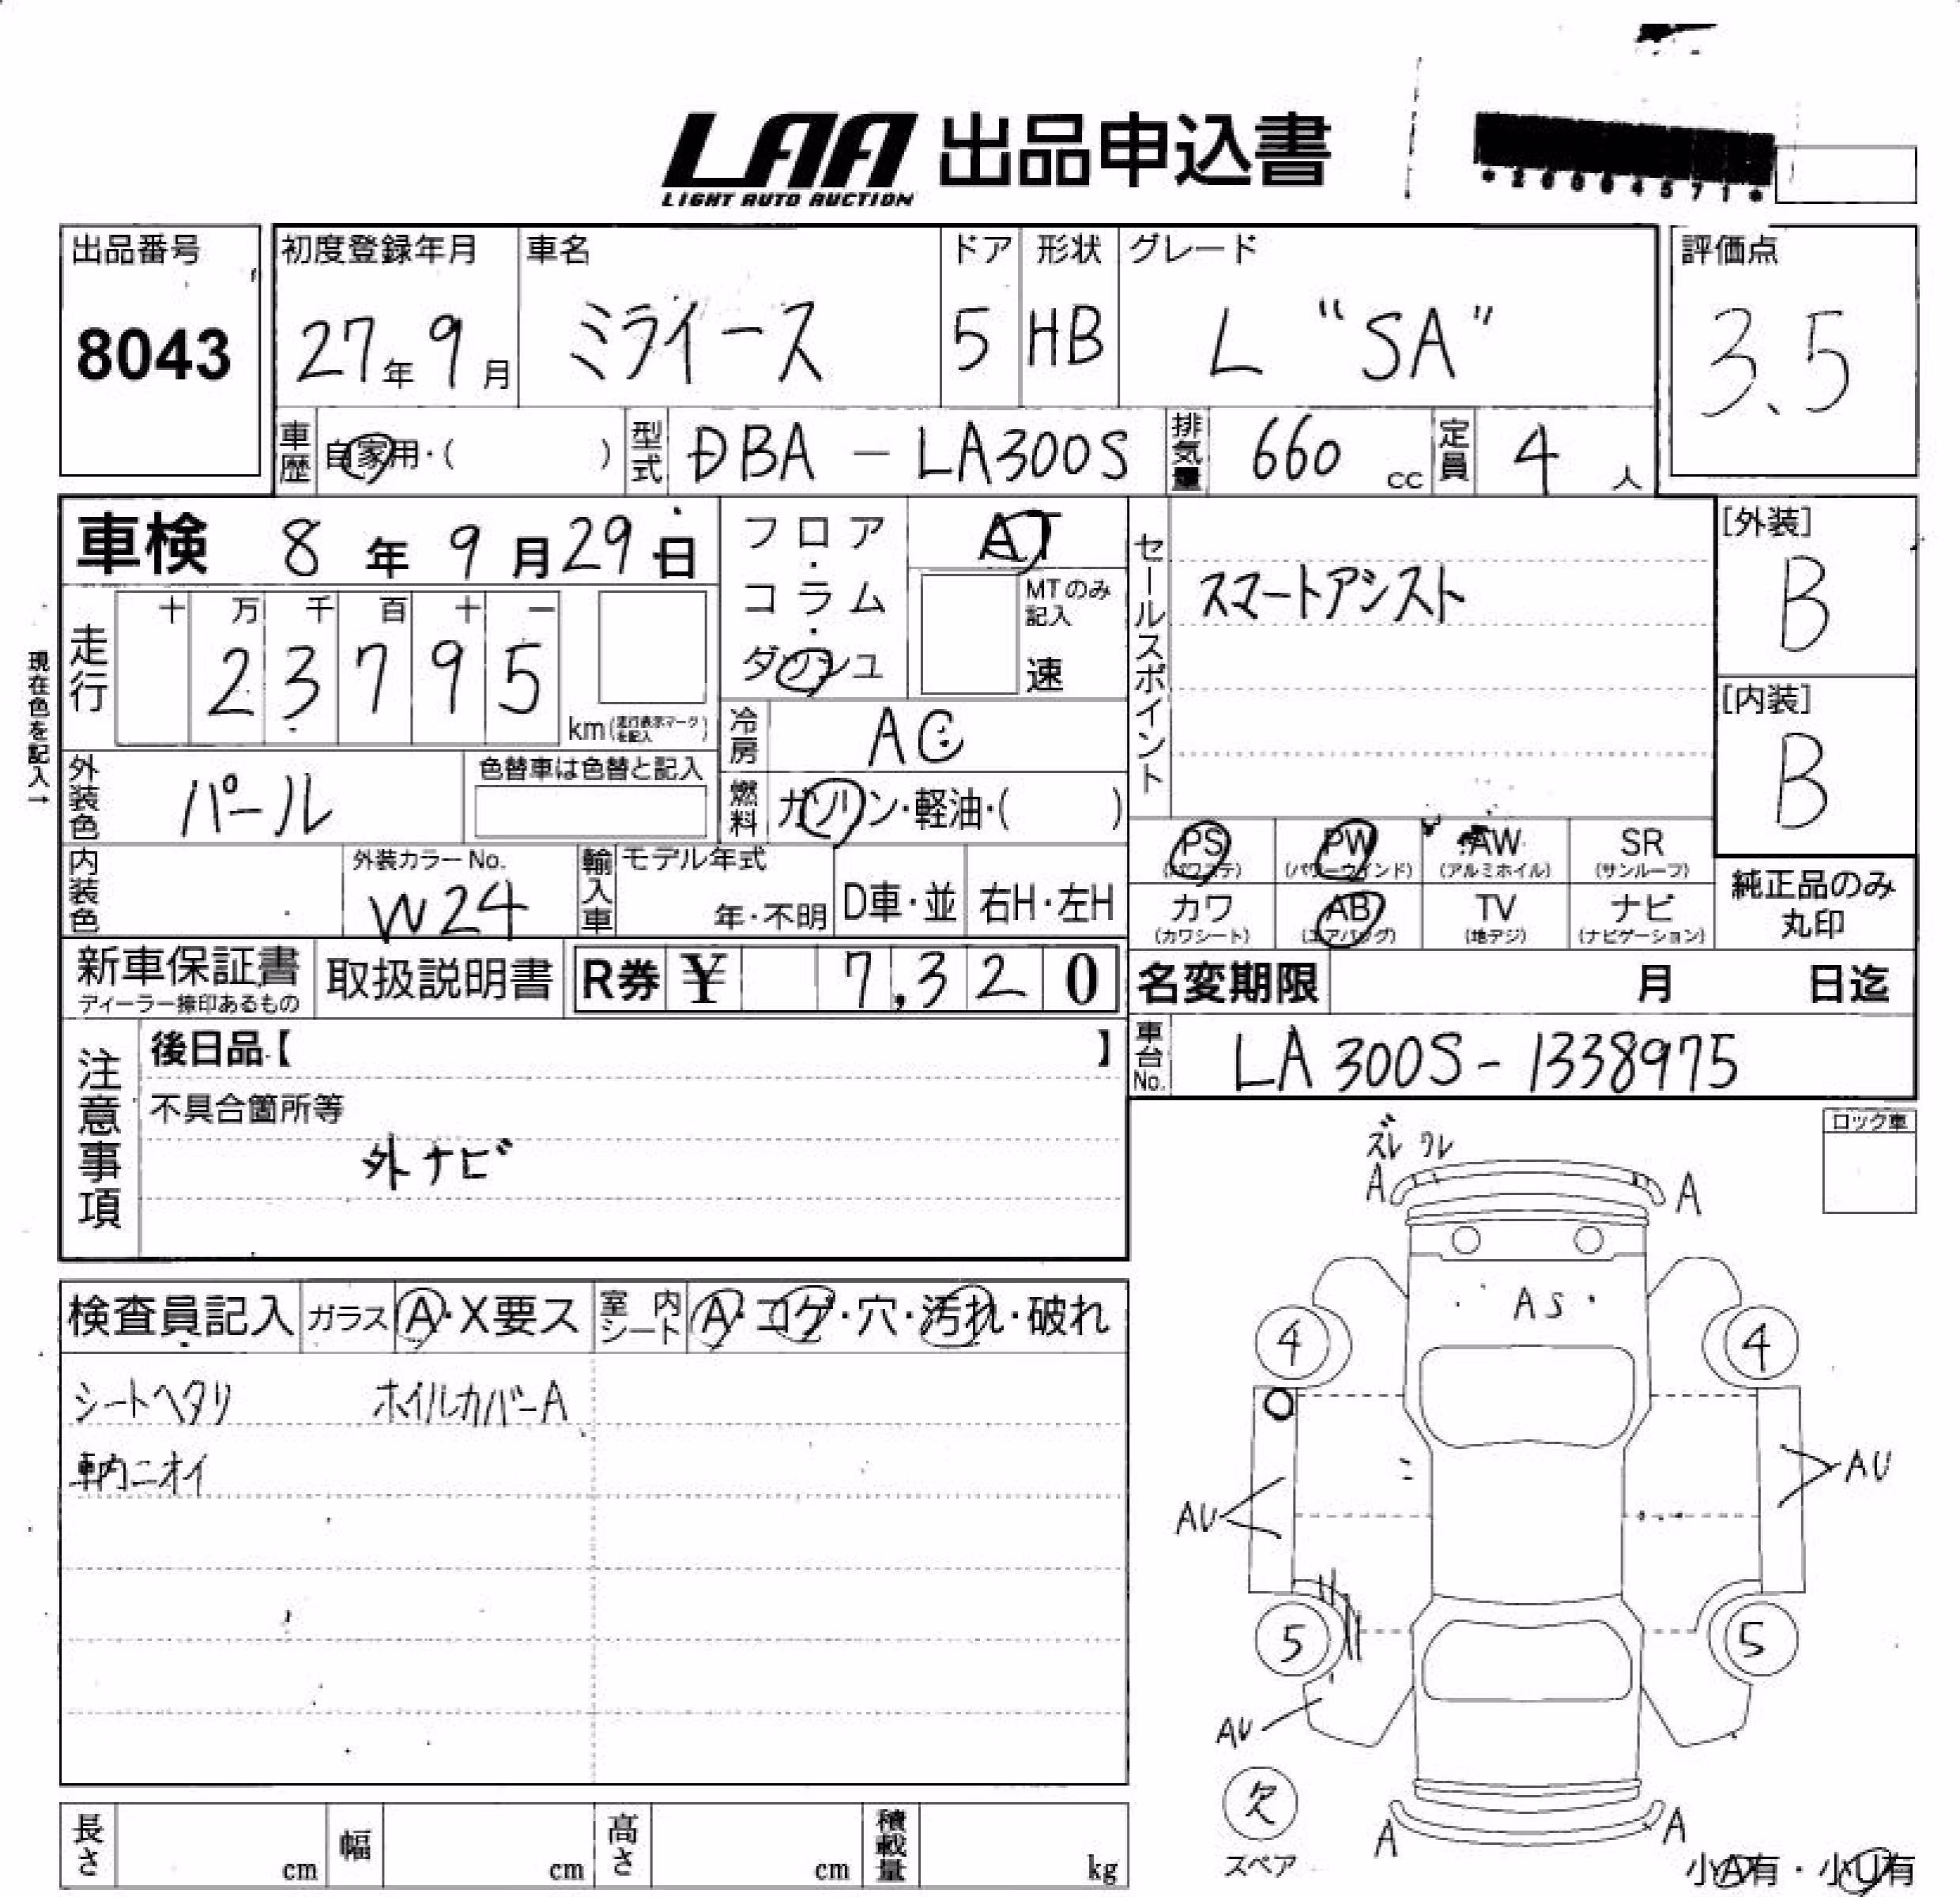 LAA 出品申込書
LIGHT AUTO AUCTION
*26804571*
出品番号 初度登録年月 車名 ドア 形状 グレード 評価点
8043 27年9月 ミライース 5 HB L "SA" 3.5
車歴 自家用・( ) 型式 DBA-LA300S 排気量 660 cc 定員 4 人
車検 8年9月29日 フロア・コラム・ダッシュ AT セールスポイント [外装]
MTのみ記入 速 スマートアシスト B
現在色を記入→
走行 十万千百十一
23795 km(走行表示マークを記入) [内装]
冷房 AC B
外装色 パール 色替車は色替と記入 燃料 ガソリン・軽油・( )
PS (パワステ) PW (パワーウインド) AW (アルミホイル) SR (サンルーフ)
内装色 外装カラーNo. W24 輸入車 モデル年式 年・不明 D車・並 右H・左H
カワ (カワシート) AB (エアバッグ) TV (地デジ) ナビ (ナビゲーション) 純正品のみ丸印
新車保証書 ディーラー捺印あるもの 取扱説明書 R券 ¥ 7,320 名変期限 月 日迄
注意事項 後日品【 】 車台No. LA300S-1338975
不具合箇所等
外ナビ
ロック車
ズレ ワレ
A A
検査員記入 ガラス A・X要ス 室内シート A・コゲ・穴・汚れ・破れ
シートヘタリ ホイルカバーA
車内ニオイ
AS
4 4
AU AU
5 5
AU
欠
スペア
A A
長さ cm 幅 cm 高さ cm 積載量 kg
小A有・小U有